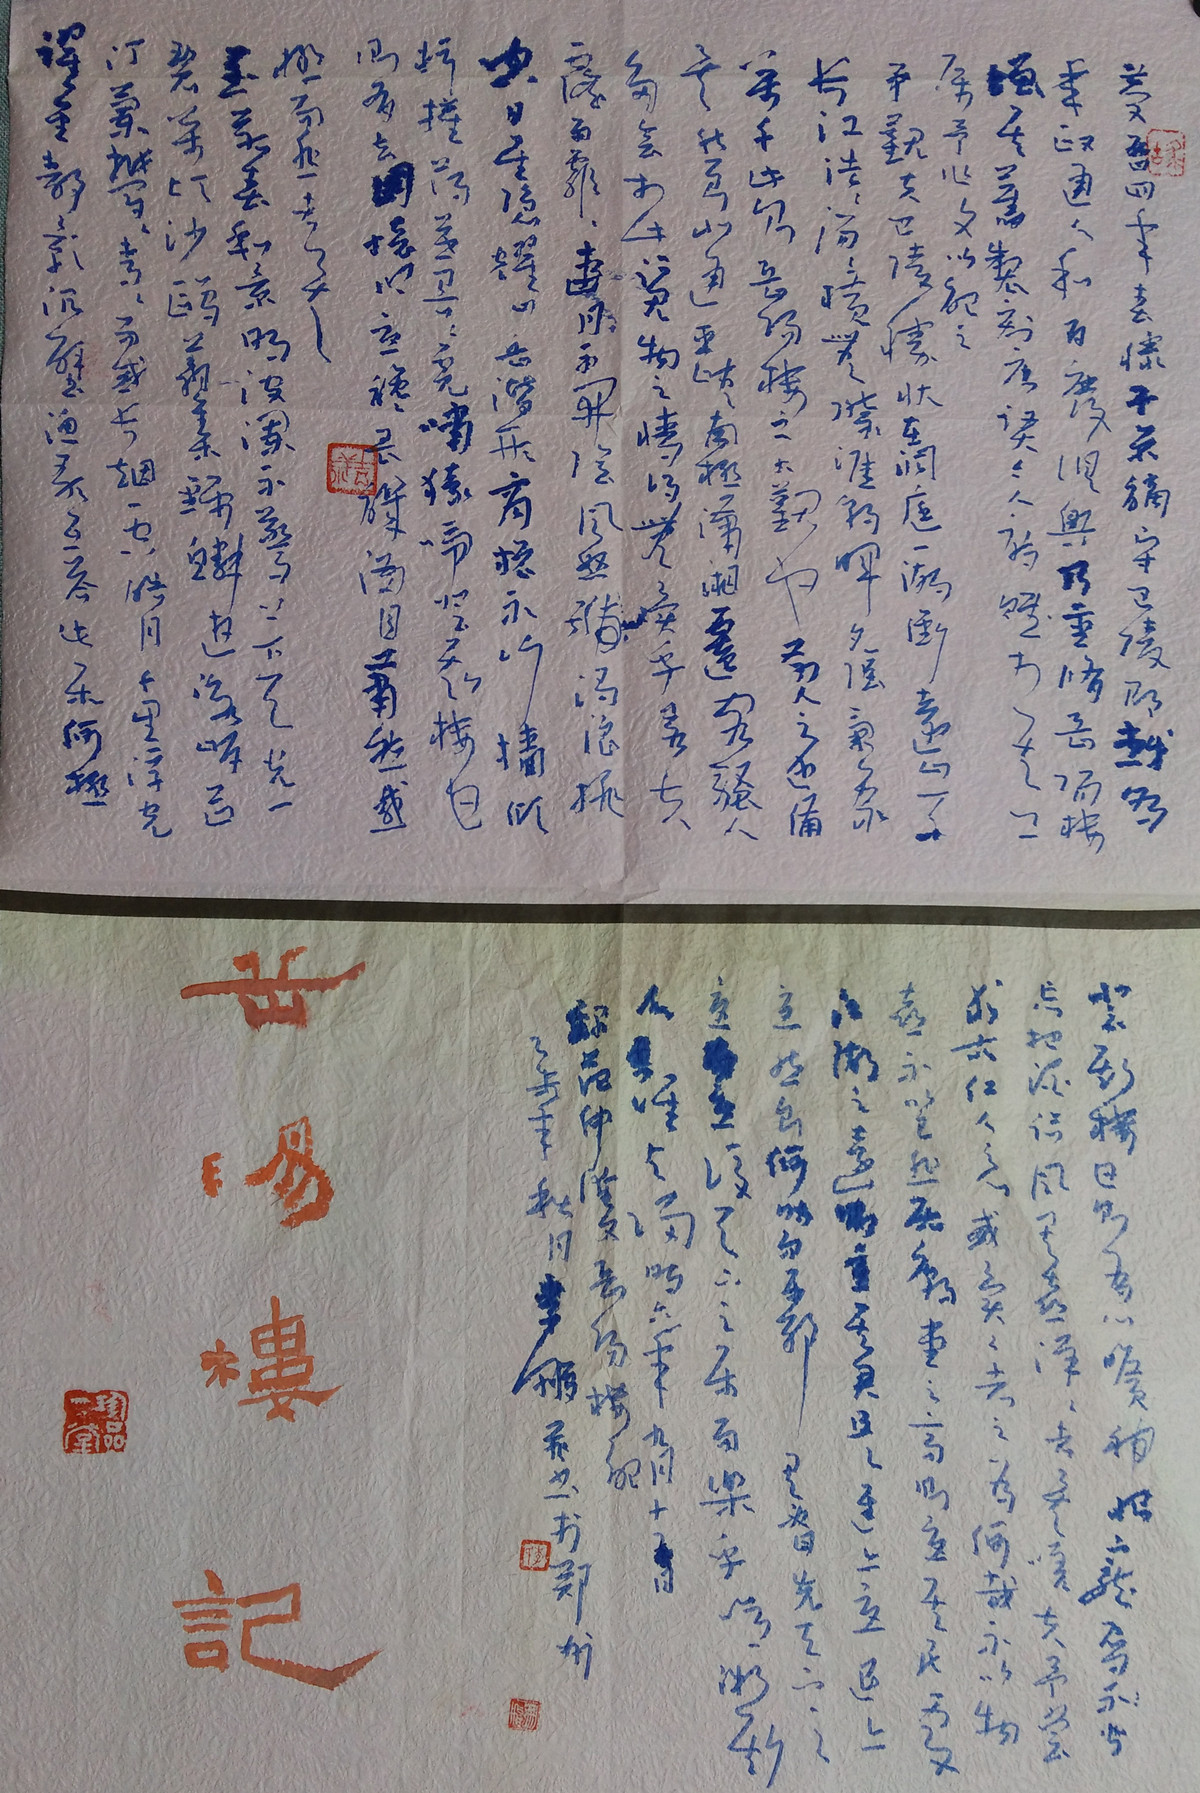 慶曆四年春滕子京謫守巴陵郡越明
年政通人和百廢俱興乃重修岳陽樓
增其舊製刻唐賢今人詩賦于其上
屬予作文以記之
予觀夫巴陵勝狀在洞庭一湖銜遠山吞
长江浩々湯々橫無際涯朝暉夕陰氣象
萬千此則岳陽樓之大觀也前人之述備
矣然則北通巫峽南極瀟湘遷客騷人
多会於此覽物之情得無異乎若夫
霪雨霏々連月不開陰風怒號濁浪排
空日星隱耀山岳潛形商旅不行檣傾
楫摧薄暮冥々虎嘯猿啼登斯樓也
則有去國懷鄉憂讒畏譏滿目蕭然感
極而悲者矣
至若春和景明波瀾不驚上下天光一
碧萬頃沙鷗翔集錦鱗遊泳岸芷
汀蘭郁々青々而或长烟一空皓月千里浮光
躍金靜影沉璧漁歌互答此樂何極
登斯樓也則有心曠神怡寵辱皆
忘把酒临风其喜洋々者矣嗟夫予嘗
求古仁人之心或異二者之為何哉不以物
喜不以己悲居廟堂之高則憂其民處
江湖之遠則憂其君是進亦憂退亦
憂然則何時而樂耶其曰先天下之
憂而憂後天下之樂而樂乎噫微斯
人吾誰與歸時六年九月十五日
錄范仲淹文岳陽樓記
己亥年秋月書於鄭州
岳陽樓記